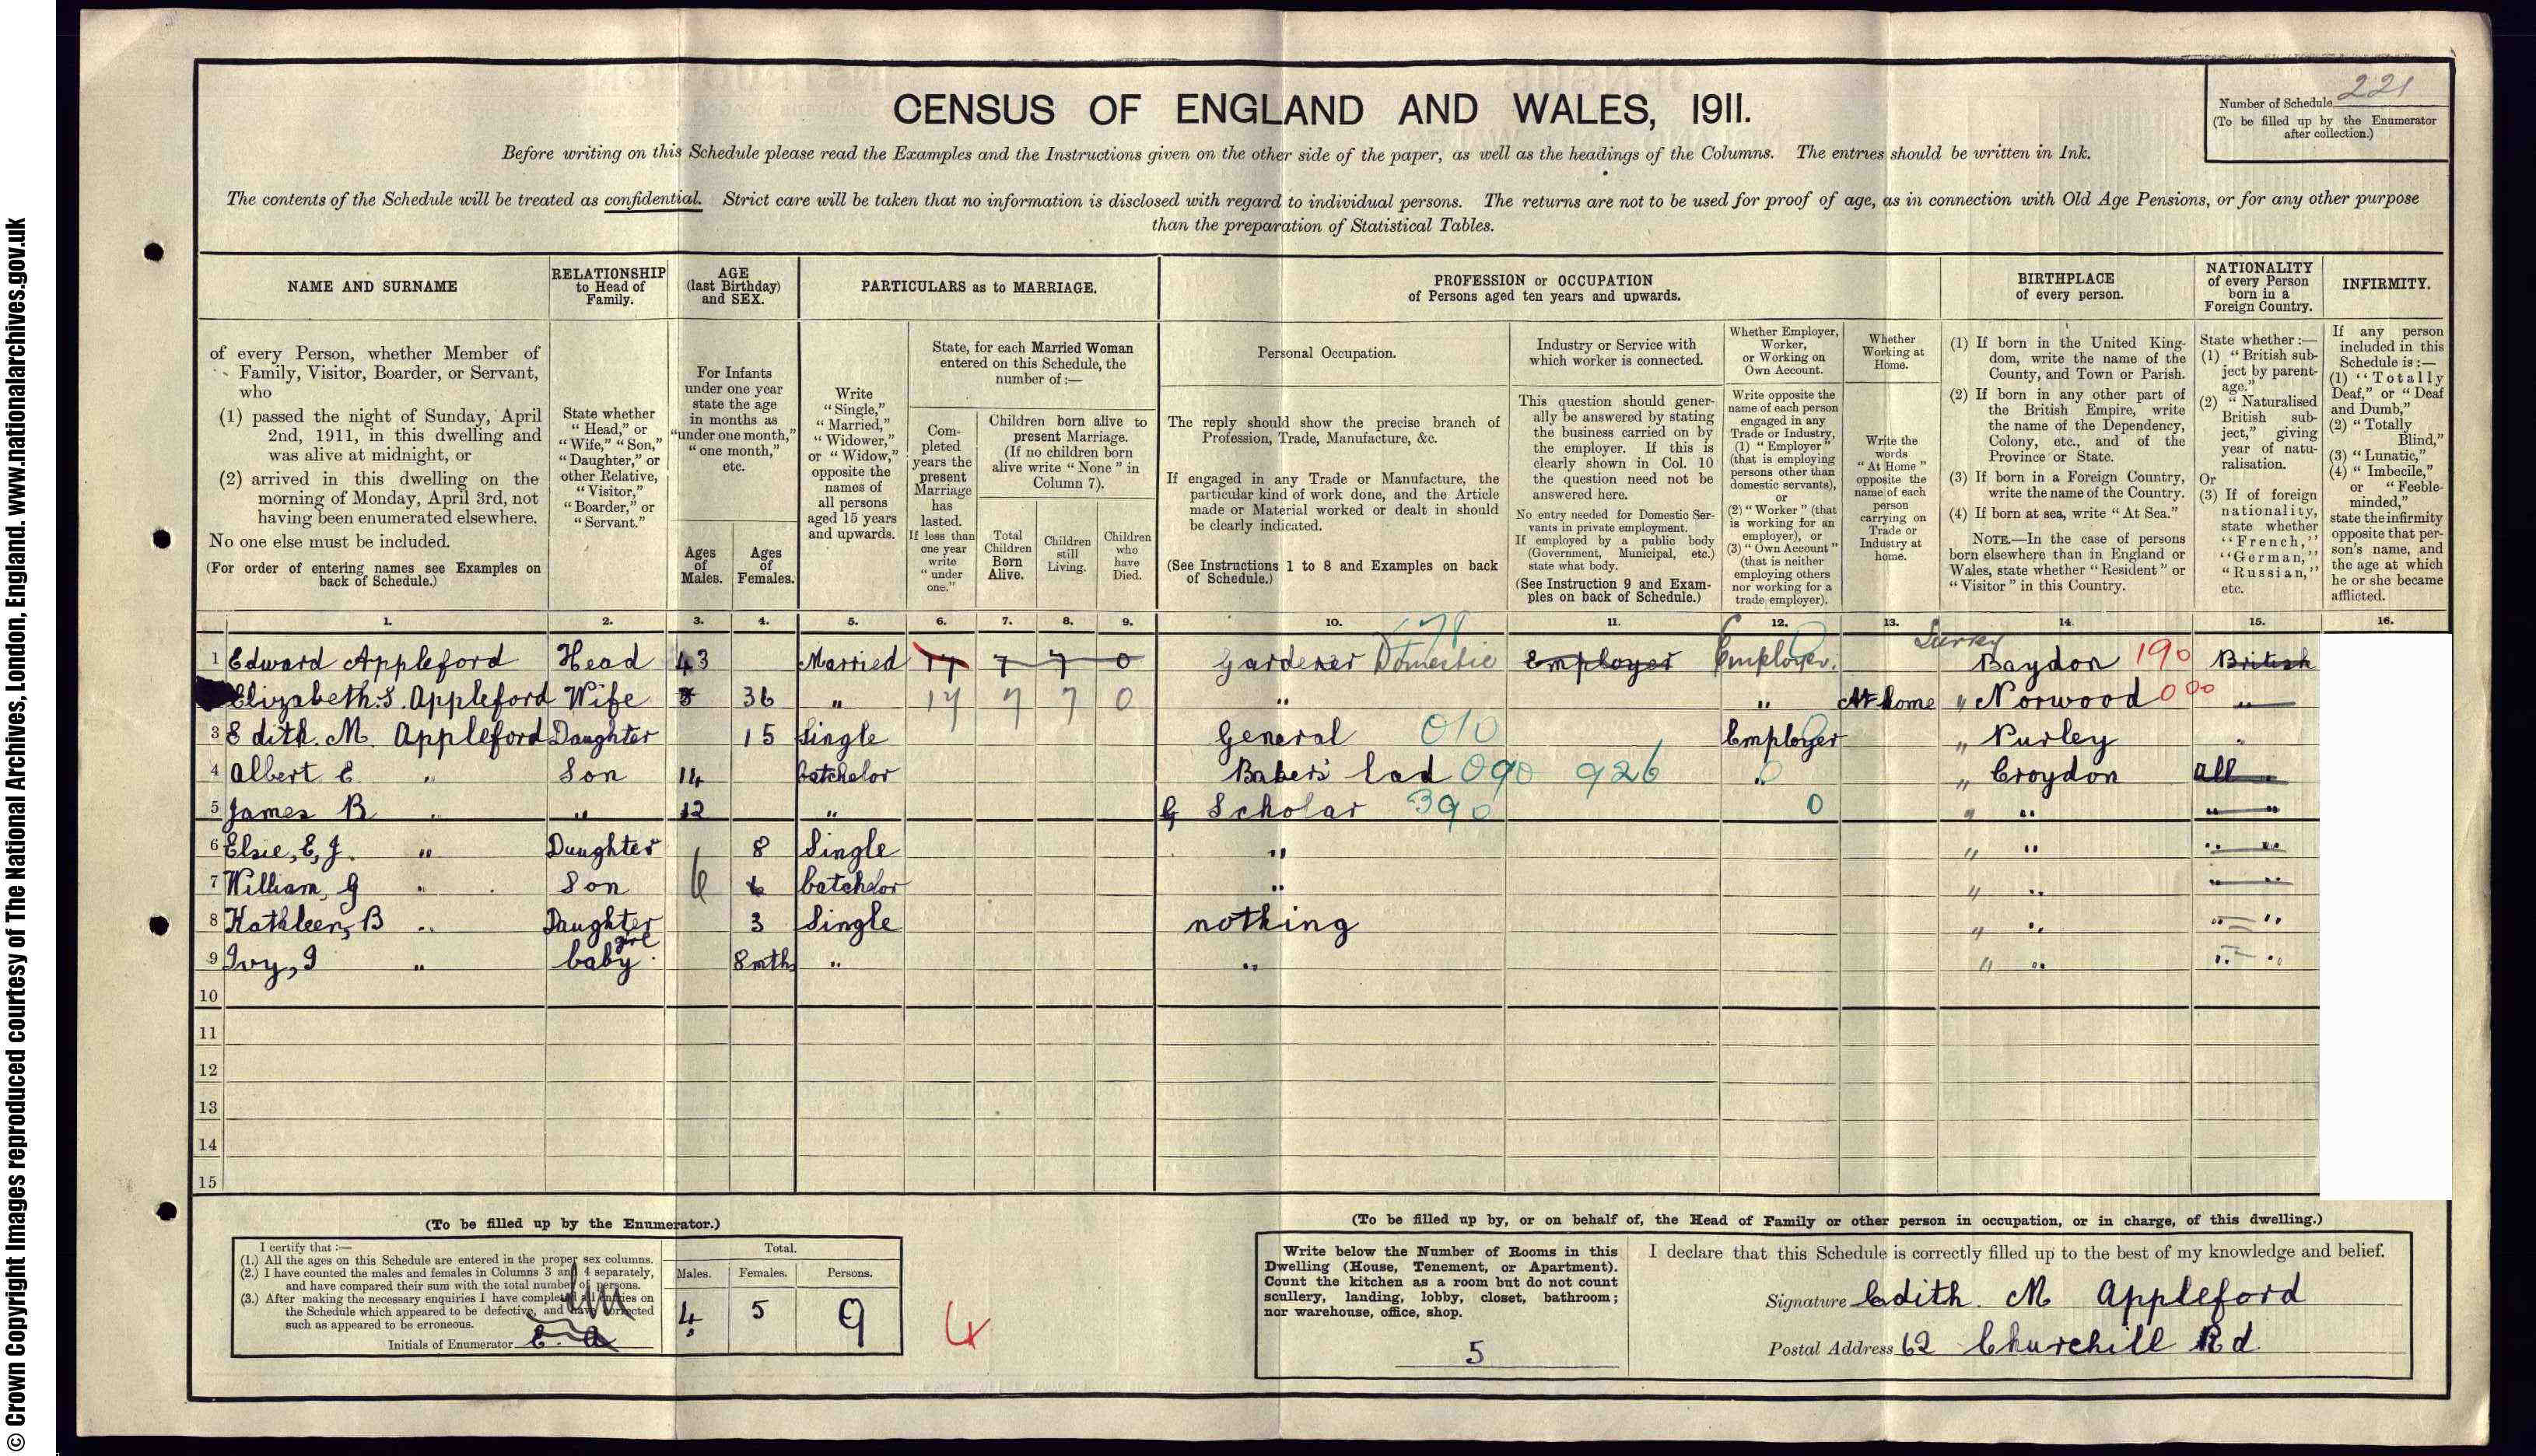 © Crown Copyright Images reproduced courtesy of The National Archives, London, England. www.nationalarchives.gov.uk
CENSUS OF ENGLAND AND WALES, 1911.
Number of Schedule 221
(To be filled up by the Enumerator after collection.)
Before writing on this Schedule please read the Examples and the Instructions given on the other side of the paper, as well as the headings of the Columns. The entries should be written in Ink.
The contents of the Schedule will be treated as confidential. Strict care will be taken that no information is disclosed with regard to individual persons. The returns are not to be used for proof of age, as in connection with Old Age Pensions, or for any other purpose
than the preparation of Statistical Tables.
NAME AND SURNAME
of every Person, whether Member of
Family, Visitor, Boarder, or Servant,
who
(1) passed the night of Sunday, April
2nd, 1911, in this dwelling and
was alive at midnight, or
(2) arrived in this dwelling on the
morning of Monday, April 3rd, not
having been enumerated elsewhere.
No one else must be included.
(For order of entering names see Examples on
back of Schedule.)
RELATIONSHIP
to Head of
Family.
State whether
"Head," or
"Wife," "Son,"
"Daughter," or
other Relative,
"Visitor,"
"Boarder," or
"Servant."
AGE
(last Birthday)
and SEX.
For Infants
under one year
state the age
in months as
"under one month,"
"one month,"
etc.
Ages
of
Males.
Ages
of
Females.
PARTICULARS as to MARRIAGE.
Write
"Single,"
"Married,"
"Widower,"
or "Widow,"
opposite the
names of
all persons
aged 15 years
and upwards.
State, for each Married Woman
entered on this Schedule, the
number of:—
Com-
pleted
years the
present
Marriage
has
lasted.
If less than
one year
write
"under
one."
Children born alive to
present Marriage.
(If no children born
alive write "None" in
Column 7).
Total
Children
Born
Alive.
Children
still
Living.
Children
who
have
Died.
PROFESSION or OCCUPATION
of Persons aged ten years and upwards.
Personal Occupation.
The reply should show the precise branch of
Profession, Trade, Manufacture, &c.
If engaged in any Trade or Manufacture, the
particular kind of work done, and the Article
made or Material worked or dealt in should
be clearly indicated.
(See Instructions 1 to 8 and Examples on back
of Schedule.)
Industry or Service with
which worker is connected.
This question should gener-
ally be answered by stating
the business carried on by
the employer. If this is
clearly shown in Col. 10
the question need not be
answered here.
No entry needed for Domestic Ser-
vants in private employment.
If employed by a public body
(Government, Municipal, etc.)
state what body.
(See Instruction 9 and Exam-
ples on back of Schedule.)
Whether Employer,
Worker,
or Working on
Own Account.
Write opposite the
name of each person
engaged in any
Trade or Industry,
(1) "Employer"
(that is employing
persons other than
domestic servants),
or
(2) "Worker" (that
is working for an
employer), or
(3) "Own Account"
(that is neither
employing others
nor working for a
trade employer).
Whether
Working at
Home.
Write the
words
"At Home"
opposite the
name of each
person
carrying on
Trade or
Industry at
home.
BIRTHPLACE
of every person.
(1) If born in the United King-
dom, write the name of the
County, and Town or Parish.
(2) If born in any other part of
the British Empire, write
the name of the Dependency,
Colony, etc., and of the
Province or State.
(3) If born in a Foreign Country,
write the name of the Country.
(4) If born at sea, write "At Sea."
NOTE.—In the case of persons
born elsewhere than in England or
Wales, state whether "Resident" or
"Visitor" in this Country.
NATIONALITY
of every Person
born in a
Foreign Country.
State whether:—
(1) "British sub-
ject by parent-
age."
(2) "Naturalised
British sub-
ject," giving
year of natu-
ralisation.
Or
(3) If of foreign
nationality,
state whether
"French,"
"German,"
"Russian,"
etc.
INFIRMITY.
If any person
included in this
Schedule is:—
(1) "Totally
Deaf," or "Deaf
and Dumb,"
(2) "Totally
Blind,"
(3) "Lunatic,"
(4) "Imbecile,"
or "Feeble-
minded,"
state the infirmity
opposite that per-
son's name, and
the age at which
he or she became
afflicted.
1. 2. 3. 4. 5. 6. 7. 8. 9. 10. 11. 12. 13. 14. 15. 16.
1 Edward Appleford Head 43 Married 17 7 7 0 Gardener Domestic Employer Employer. Baydon 190 British
Elizabeth.S. Appleford Wife 36 " 17 7 7 0 " " At home " Norwood 000 "
3 Edith. M. Appleford Daughter 15 Single General 010 Employer " Purley "
4 Albert E " Son 14 batchelor Bakers lad 090 926 " " Croydon All "
5 James B " " 12 " Scholar 390 0 " " " "
6 Elsie, E, J. " Daughter 8 Single " " " " "
7 William, G " Son 6 6 batchelor " " " " "
8 Kathleen, B " Daughter 3 Single nothing " " " "
9 Ivy, I " baby girl 8mth " " " " " "
10
11
12
13
14
15
(To be filled up by the Enumerator.)
I certify that:—
(1.) All the ages on this Schedule are entered in the proper sex columns.
(2.) I have counted the males and females in Columns 3 and 4 separately,
and have compared their sum with the total number of persons.
(3.) After making the necessary enquiries I have completed all entries on
the Schedule which appeared to be defective, and have corrected
such as appeared to be erroneous.
Initials of Enumerator E. A
Total.
Males. Females. Persons.
4 5 9
4
(To be filled up by, or on behalf of, the Head of Family or other person in occupation, or in charge, of this dwelling.)
Write below the Number of Rooms in this
Dwelling (House, Tenement, or Apartment).
Count the kitchen as a room but do not count
scullery, landing, lobby, closet, bathroom;
nor warehouse, office, shop.
5
I declare that this Schedule is correctly filled up to the best of my knowledge and belief.
Signature Edith. M Appleford
Postal Address 62 Churchill Rd